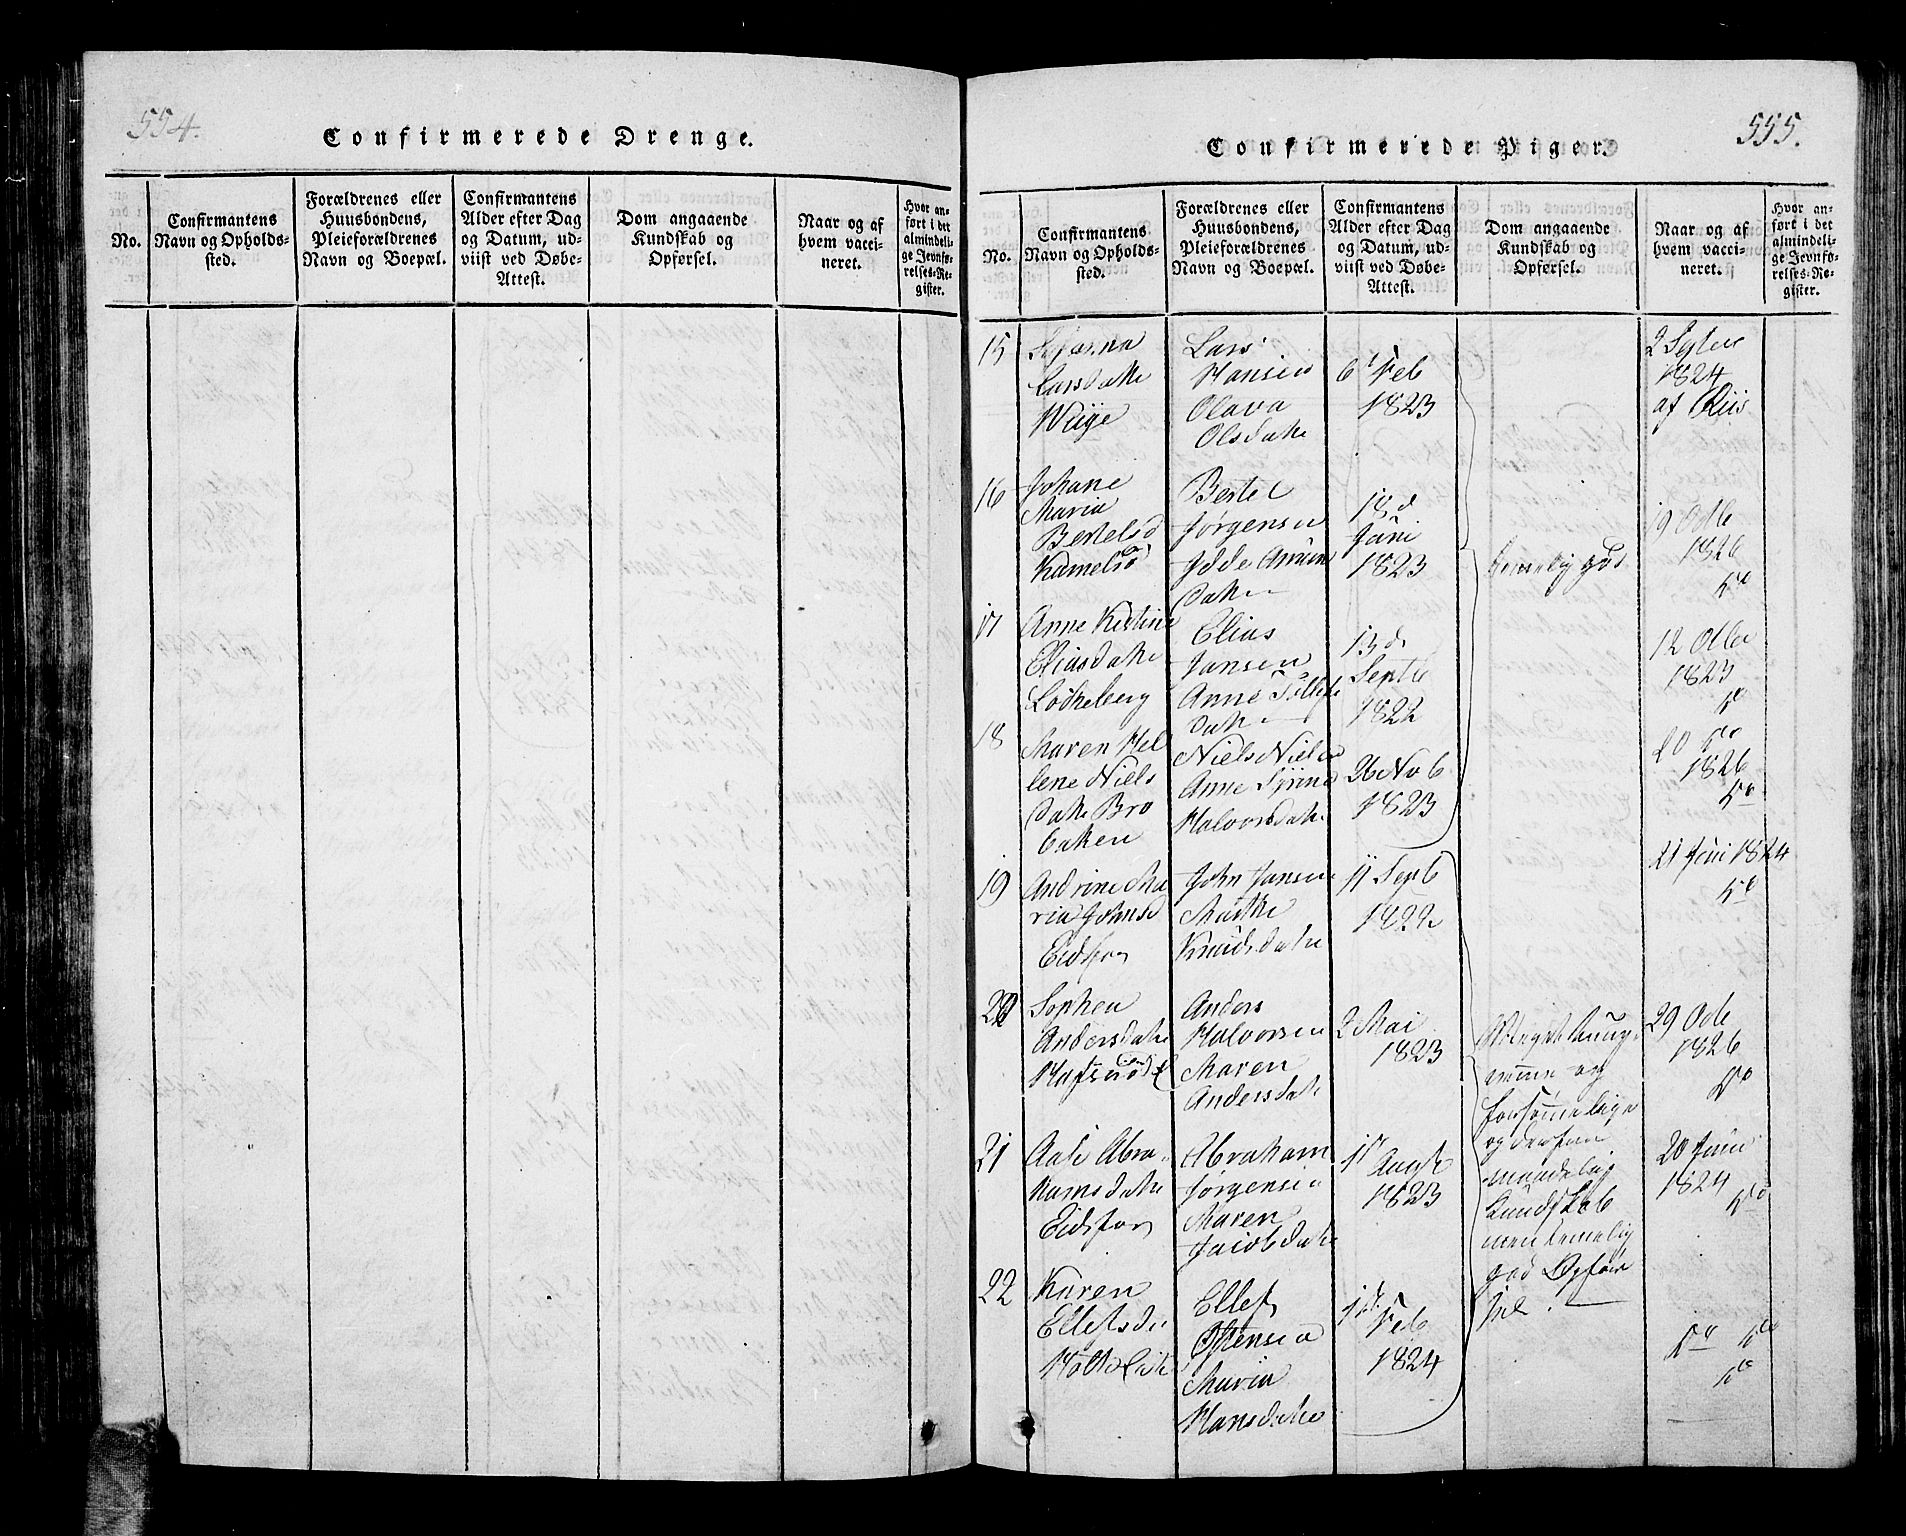 554.
Confirmerede Drenge.
No.
Confirmantens
Navn og Opholds-
sted.
Forældrenes eller
Huusbondens,
Pleieforældrenes
Navn og Boepæl.
Confirmantens
Alder efter Dag
og Datum, ud-
viist ved Døbe-
Attest.
Dom angaaende
Kundskab og
Opførsel.
Naar og af
hvem vacci-
neret.
Hvor an-
ført i det
almindeli-
ge Jevnfø-
relses-Re-
gister.
555.
Confirmerede Piger.
No.
Confirmantens
Navn og Opholds-
sted.
Forældrenes eller
Huusbondens,
Pleieforældrenes
Navn og Boepæl.
Confirmantens
Alder efter Dag
og Datum, ud-
viist ved Døbe-
Attest.
Dom angaaende
Kundskab og
Opførsel.
Naar og af
hvem vacci-
neret.
Hvor an-
ført i det
almindeli-
ge Jevnfø-
relses-Re-
gister.
15
Larsdatte
Lars
Hansen
Olava
Olsdatte
6 Feb
1823
2 Septer
1824
af Riis
16
Johane
Maria
Bertelsd
Bertel
Jørgensen
18d
Juni
1823
temelig god
19 Octb
1826
17
Anne Kistine
Eliasdatte
Løkkeberg
Elias
Jansen
Anne
datte
13 d
Septe
1822
12 Octbe
1823
18
Maren Hel
lene Niels
datte Bro
bakken
Niels Niels
Anne
Halvorsdatte
26 Nob
1823
20
1826
19
Andrine Ma
ria Johnsd
Eidsfos
John Jansen
Knudsdatte
11 Sepb
1822
21 Juni 1824
20
Sophea
Andersdatte
Anders
Halvorsen
Maren
Andersdatte
2 Mai
1823
29 Octb
1826
21
Abra
hamsdatte
Eidsfos
Abraham
Jørgensen
Maren
Jacobsdatte
17
Augst
1823
og
forsømmelige
og derfor
maadelig
Kundskab
men temelig
god Opfør
sel.
20 Juni
1824
22
Karen
Ellefsda
Ellef
Østensen
Maria
Hansdatte
Feb
1824